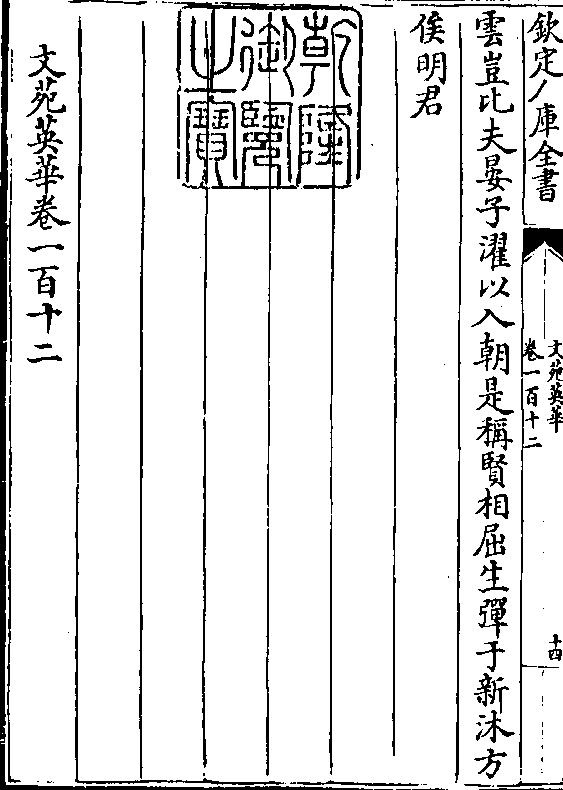 欽定八庫全書
文苑英華
卷一百十二
十四
雲豈比夫晏子濯以入朝是稱賢相屈生彈于新沐方
俟明君
乾隆
御覽
之寶
文苑英華卷一百十二